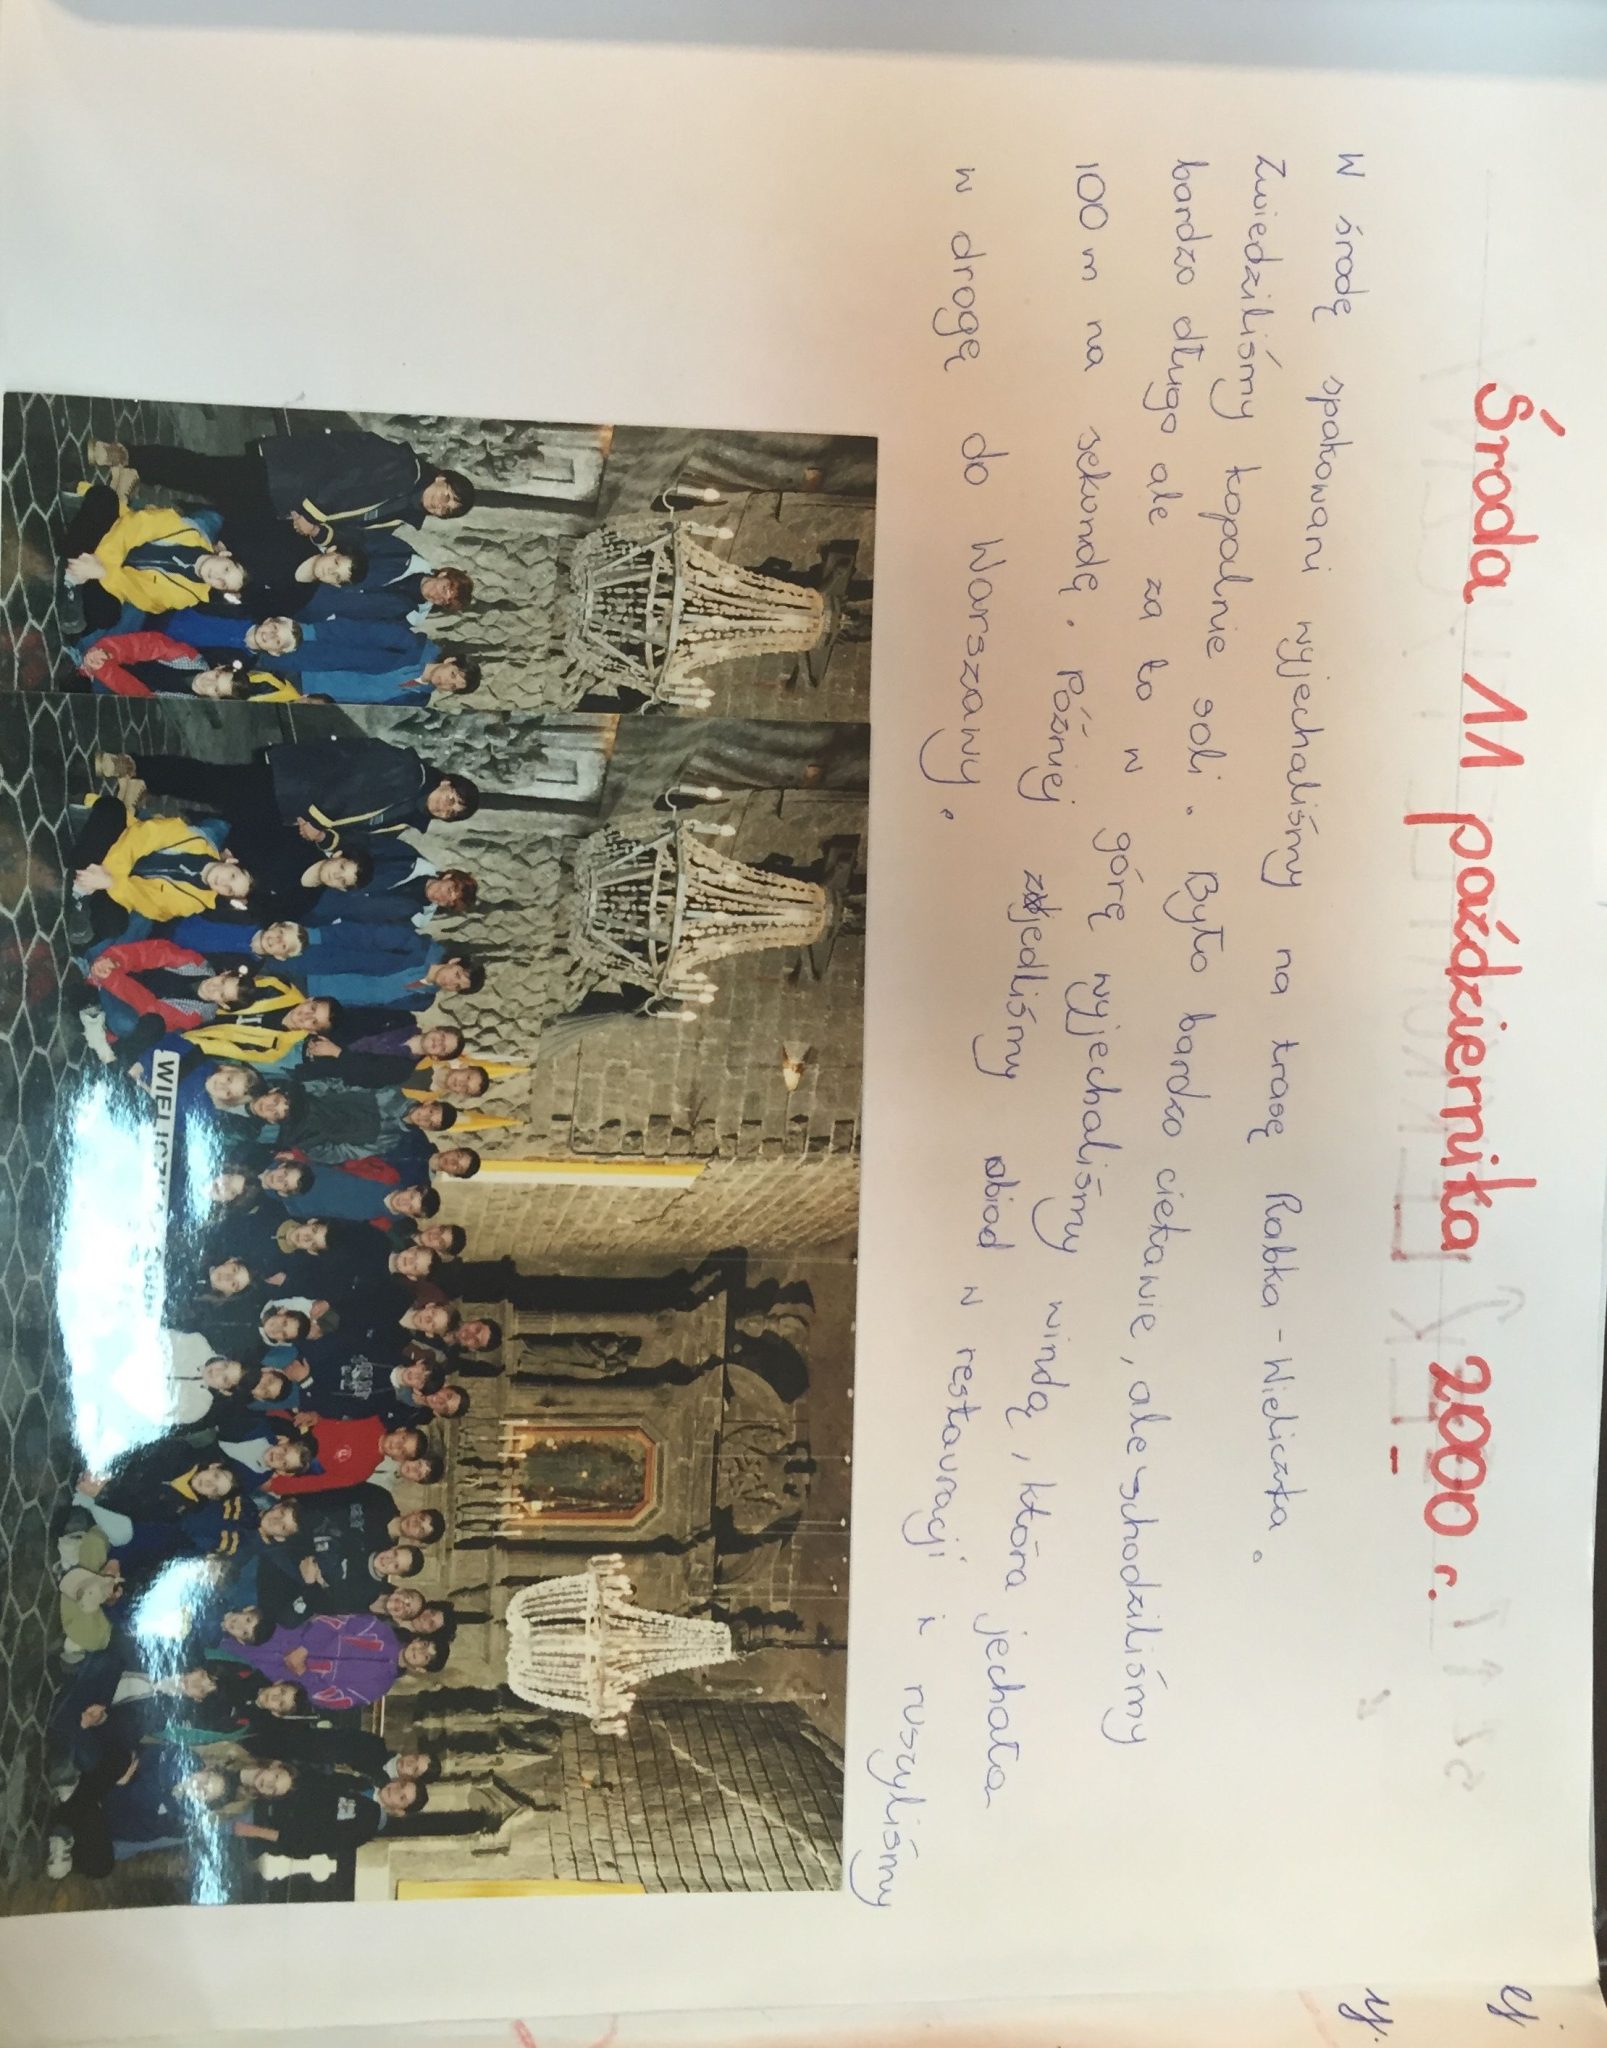 Środa 11 października 2000 r.
W środę spakowani wyjechaliśmy na trasę Rabka - Wieliczka.
Zwiedziliśmy kopalnie soli. Było bardzo ciekawie, ale schodziliśmy
bardzo długo ale za to w górę wyjechaliśmy windą, która jechała
100 m na sekundę. Później zjedliśmy obiad w restauracji i ruszyliśmy
w drogę do Warszawy.
WIELICZKA
y.